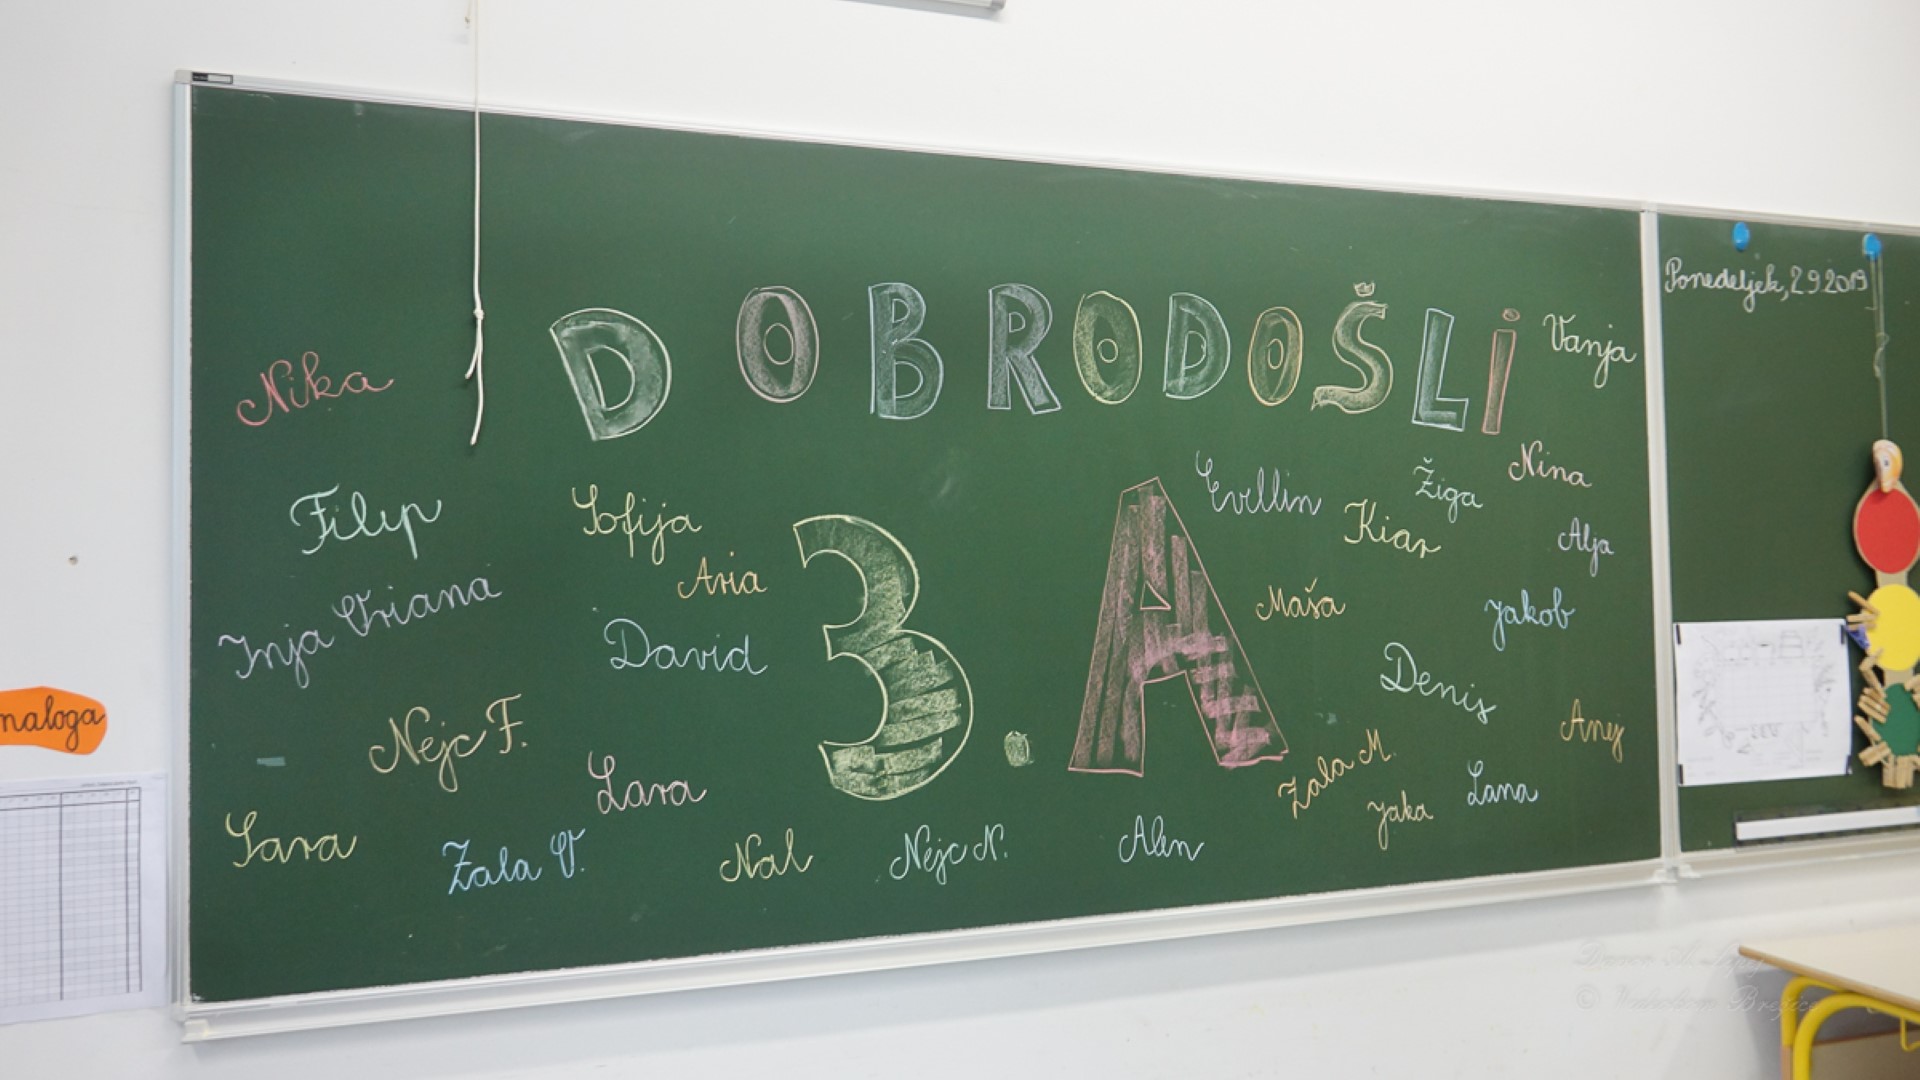 DOBRODOŠLi
Ponedeljek, 2.9.2019
Vanja
Nika
Nina
Evellin
Žiga
Filip
Sofija
Kiar
Alja
Aria
Inja Vriana
Maša
Jakob
3. A
David
Denis
Nejc F.
Anej
naloga
Lara
Zala M.
Lana
Jaka
Sara
Zala V.
Nal
Nejc N.
Alen